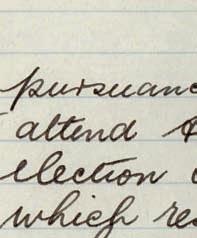 pursuanc
attend
election
which re